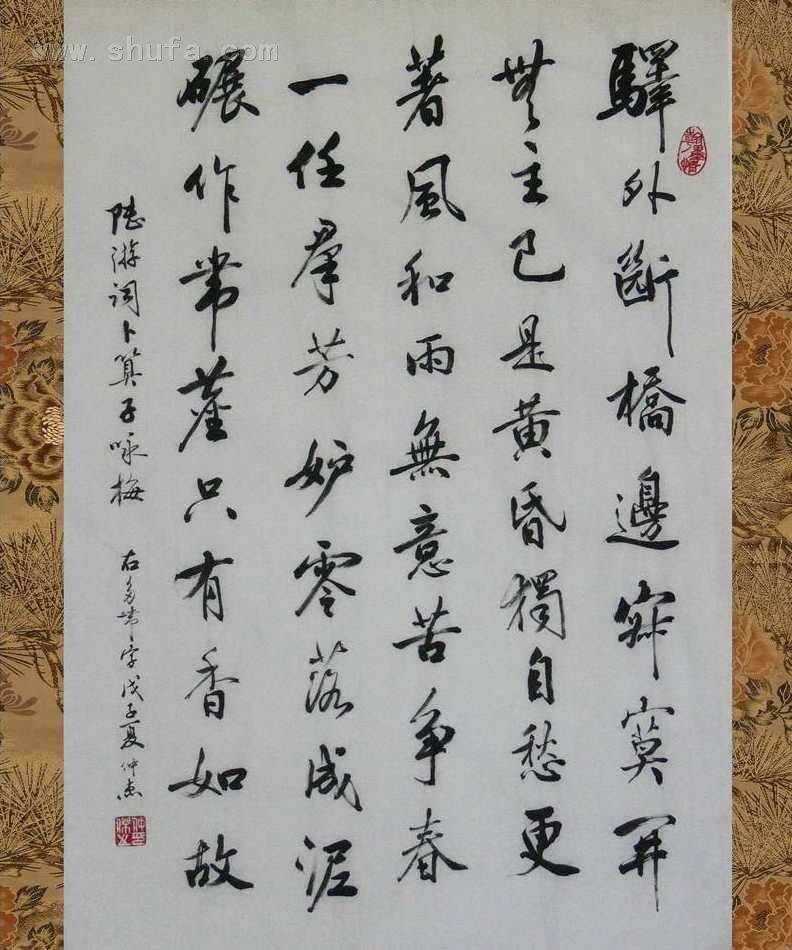 www.shufa.com
驛外斷橋邊寂寞開
無主已是黃昏獨自愁更
著風和雨無意苦爭春
一任羣芳妒零落成泥
碾作常塵只有香如故
陸游詞卜算子咏梅 右多常字戊子夏仲杰
翰墨情